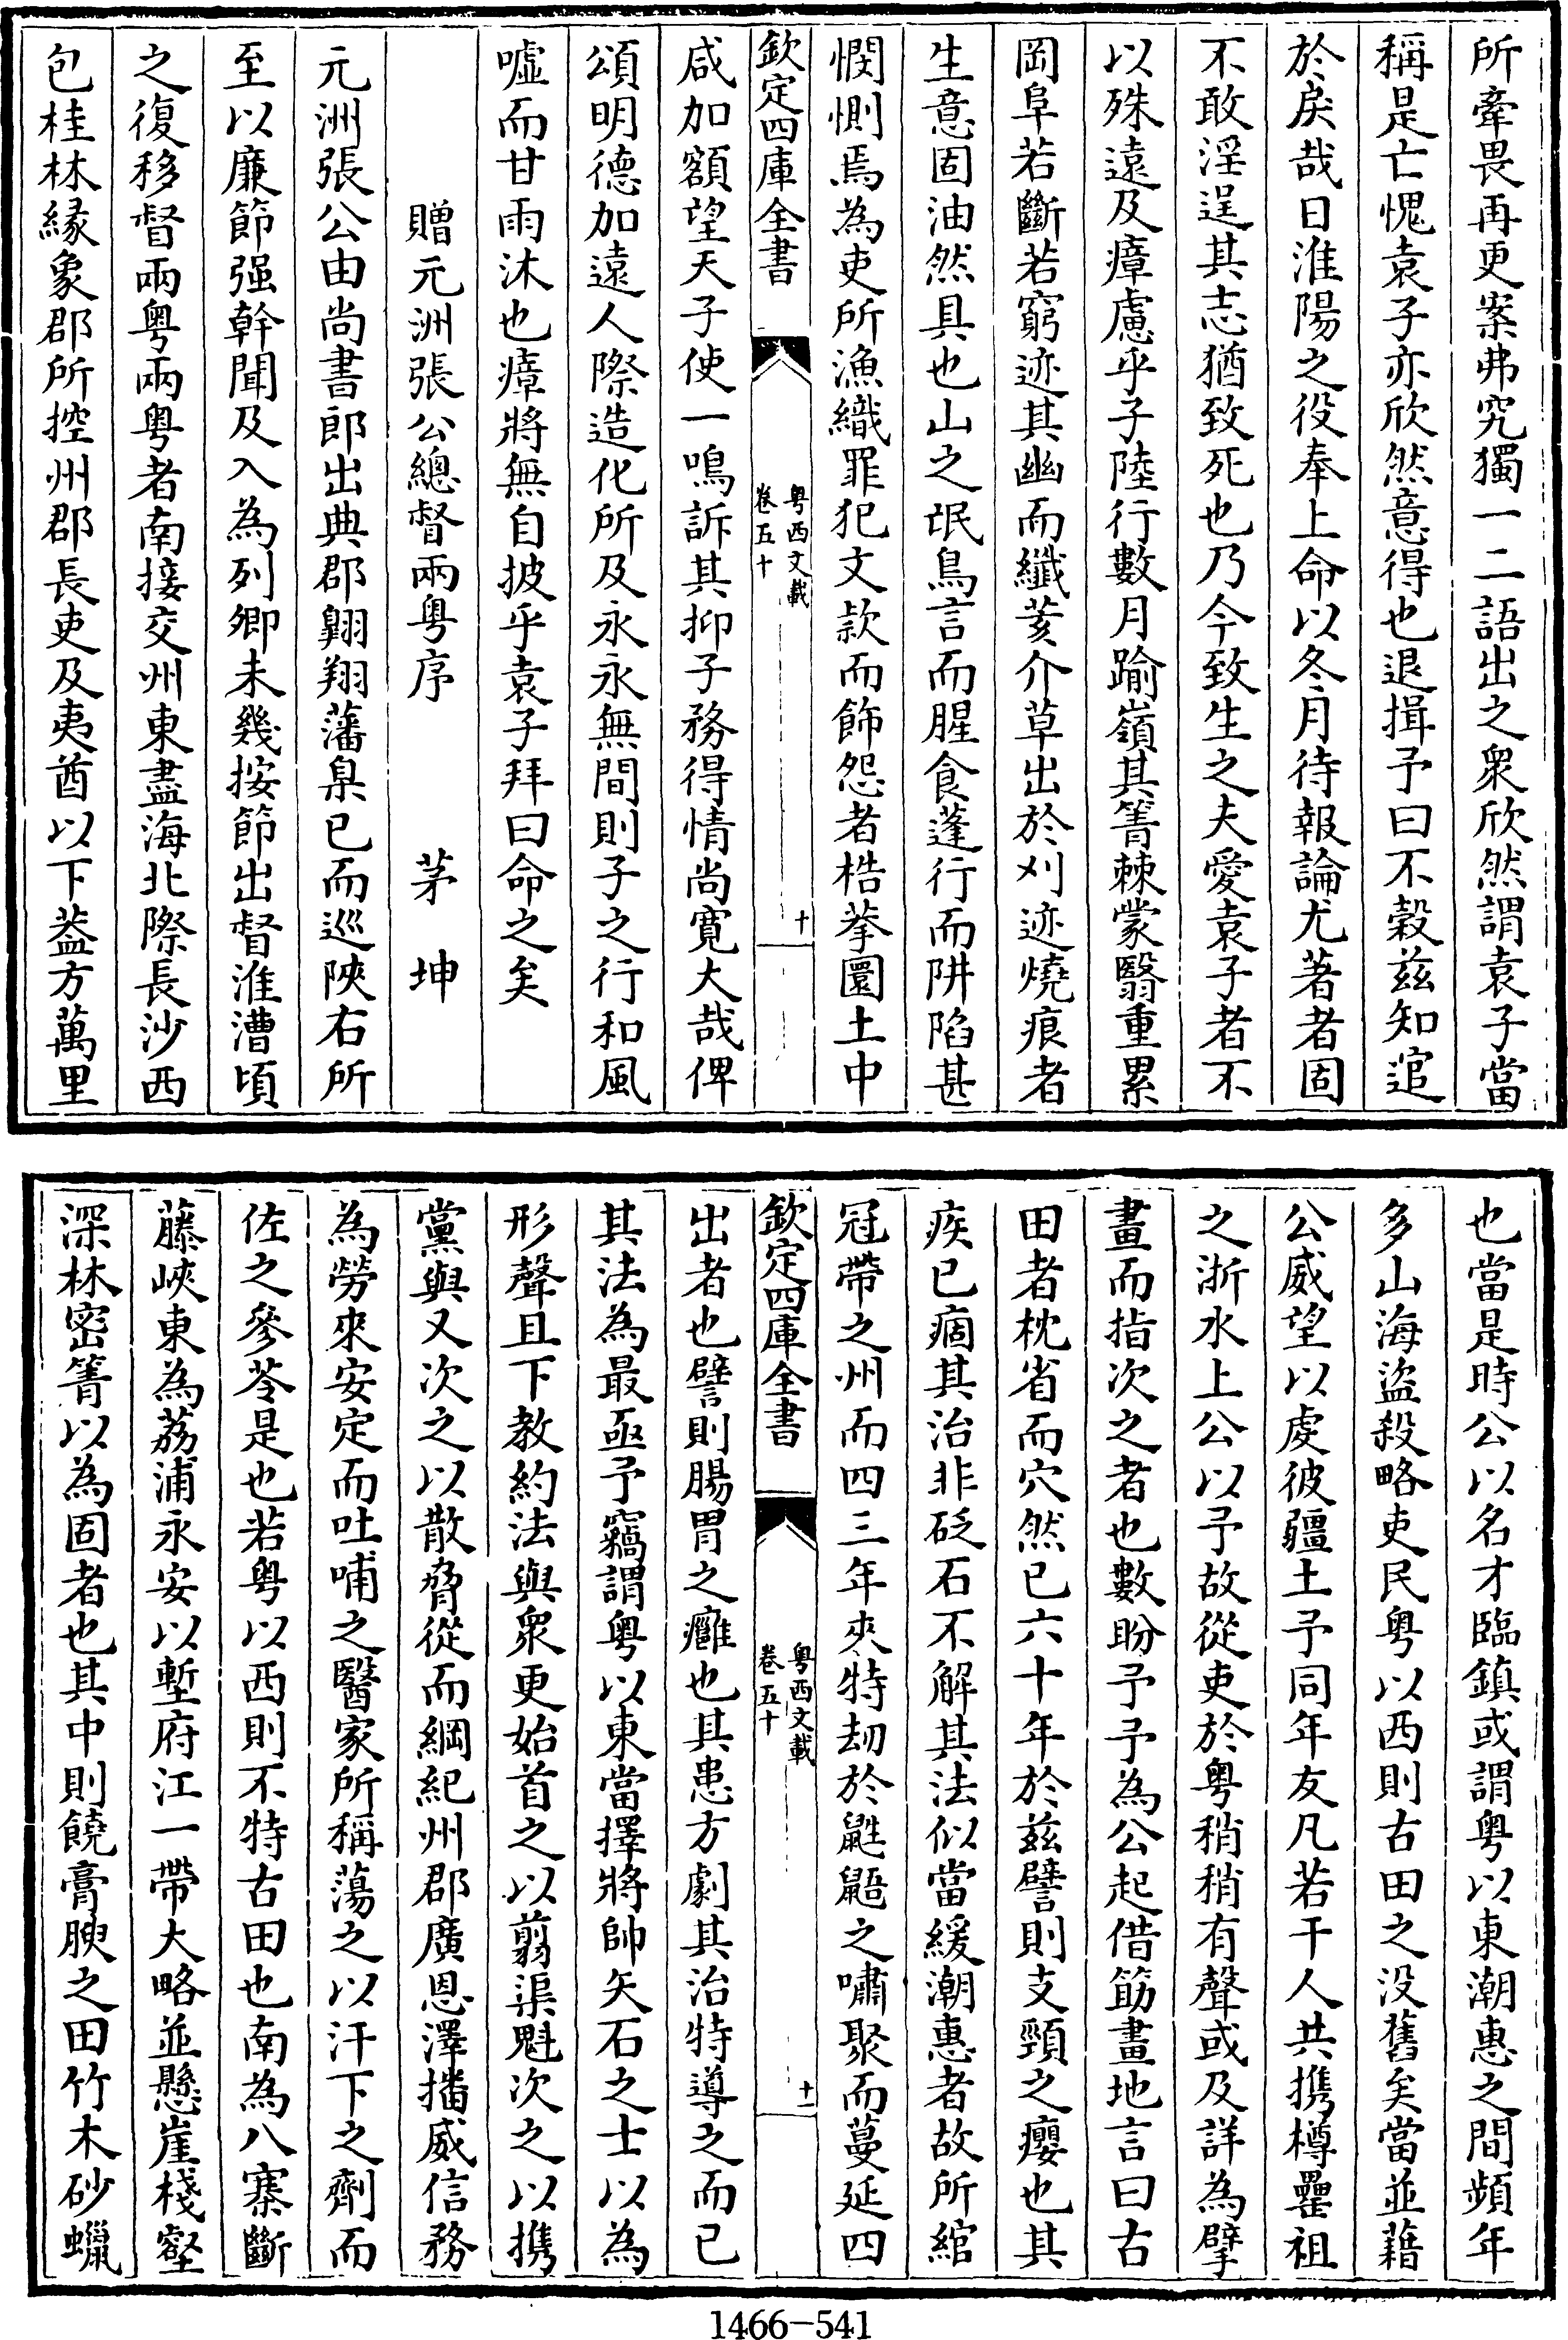 所牽畏再更案弗究獨一二語出之衆欣然謂袁子當
稱是亡愧袁子亦欣然意得也退揖予曰不穀兹知逭
於戾哉曰淮陽之役奉上命以冬月待報論尤著者固
不敢淫逞其志猶致死也乃今致生之夫愛袁子者不
以殊遠及瘴慮乎子陸行數月踰嶺其箐棘蒙翳重累
岡阜若斷若窮迹其幽而纖荄介草出於刈迹燒痕者
生意固油然具也山之氓鳥言而腥食蓬行而阱陷甚
憫惻焉為吏所漁織罪犯文款而飾怨者梏拲圜土中
欽定四庫全書
粤西文載
卷五十
十
咸加額望天子使一鳴訴其抑子務得情尚寛大哉俾
頌明德加遠人際造化所及永永無間則子之行和風
噓而甘雨沐也瘴將無自披乎袁子拜曰命之矣
贈元洲張公總督兩粤序 茅坤
元洲張公由尚書郎出典郡翺翔藩臬已而巡陜右所
至以廉節强幹聞及入為列卿未幾按節出督淮漕頃
之復移督兩粤兩粤者南接交州東盡海北際長沙西
包桂林緣象郡所控州郡長吏及夷酋以下葢方萬里
也當是時公以名才臨鎮或謂粤以東潮惠之間頻年
多山海盜殺略吏民粤以西則古田之没舊矣當並藉
公威望以虔彼疆土予同年友凡若干人共携樽罍祖
之浙水上公以予故從吏於粤稍稍有聲或及詳為擘
畫而指次之者也數盼予予為公起借筯畫地言曰古
田者枕省而穴然已六十年於兹譬則支頸之癭也其
疾已痼其治非砭石不解其法似當緩潮惠者故所綰
冠帶之州而四三年來特刼於鼪鼯之嘯聚而蔓延四
欽定四庫全書
粤西文載
卷五十
十一
出者也譬則腸胃之癰也其患方劇其治特導之而已
其法為最亟予竊謂粤以東當擇將帥矢石之士以為
形聲且下教約法與衆更始首之以翦渠魁次之以携
黨與又次之以散脅從而綱紀州郡廣恩澤播威信務
為勞來安定而吐哺之醫家所稱蕩之以汗下之劑而
佐之參苓是也若粤以西則不特古田也南為八寨斷
藤峽東為荔浦永安以塹府江一帶大略並懸崖棧壑
深林密箐以為固者也其中則饒膏腴之田竹木砂蠟
1466-541